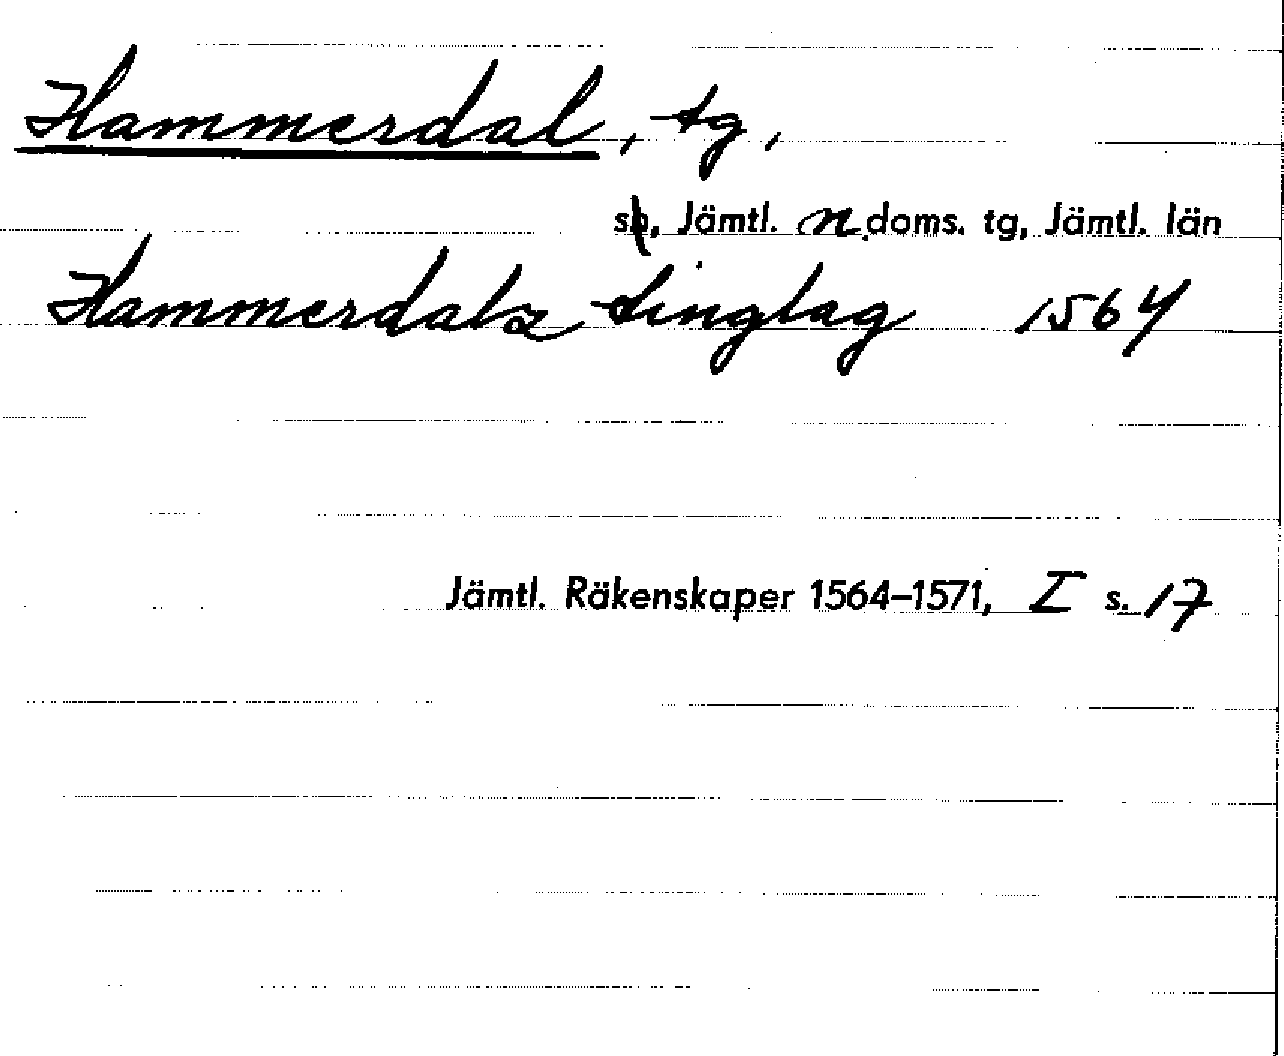 Hammerdal, tg,
sn, Jämtl. n doms. tg, Jämtl. län
Hammerdalz tinglag 1564
Jämtl. Räkenskaper 1564–1571, I s. 17